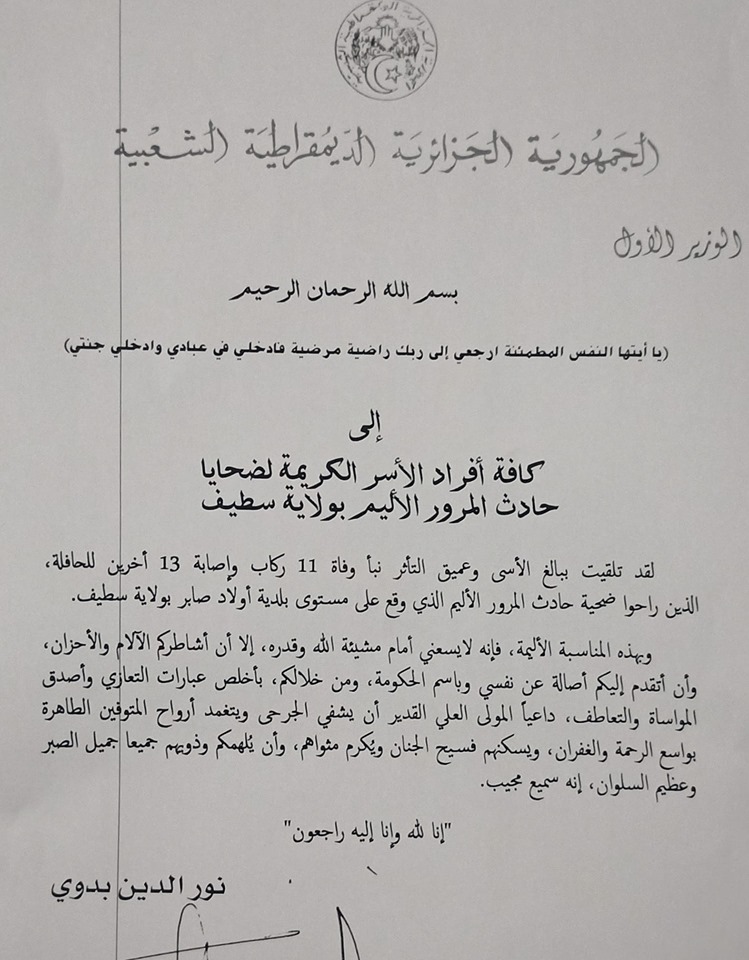 الجَمهُوريَة الجَزائريَة الدّيمُقراطيَة الشَعْبيَة
الوزير الأول
بسم الله الرحمان الرحيم
(يا أيتها النفس المطمئنة ارجعي إلى ربك راضية مرضية فادخلي في عبادي وادخلي جنتي)
إلى
كافة أفراد الأسر الكريمة لضحايا
حادث المرور الأليم بولاية سطيف
لقد تلقيت ببالغ الأسى وعميق التأثر نبأ وفاة 11 ركاب وإصابة 13 أخرين للحافلة،
الذين راحوا ضحية حادث المرور الأليم الذي وقع على مستوى بلدية أولاد صابر بولاية سطيف.
وبهذه المناسبة الأليمة، فإنه لايسعني أمام مشيئة الله وقدره، إلا أن أشاطركم الآلام والأحزان،
وأن أتقدم إليكم أصالة عن نفسي وباسم الحكومة، ومن خلالكم، بأخلص عبارات التعازي وأصدق
المواساة والتعاطف، داعياً المولى العلي القدير أن يشفي الجرحى ويتغمد أرواح المتوفين الطاهرة
بواسع الرحمة والغفران، ويسكنهم فسيح الجنان ويُكرم مثواهم، وأن يُلهمكم وذويهم جميعا جميل الصبر
وعظيم السلوان، إنه سميع مجيب.
"إنا لله وانا إليه راجعون"
نور الدين بدوي